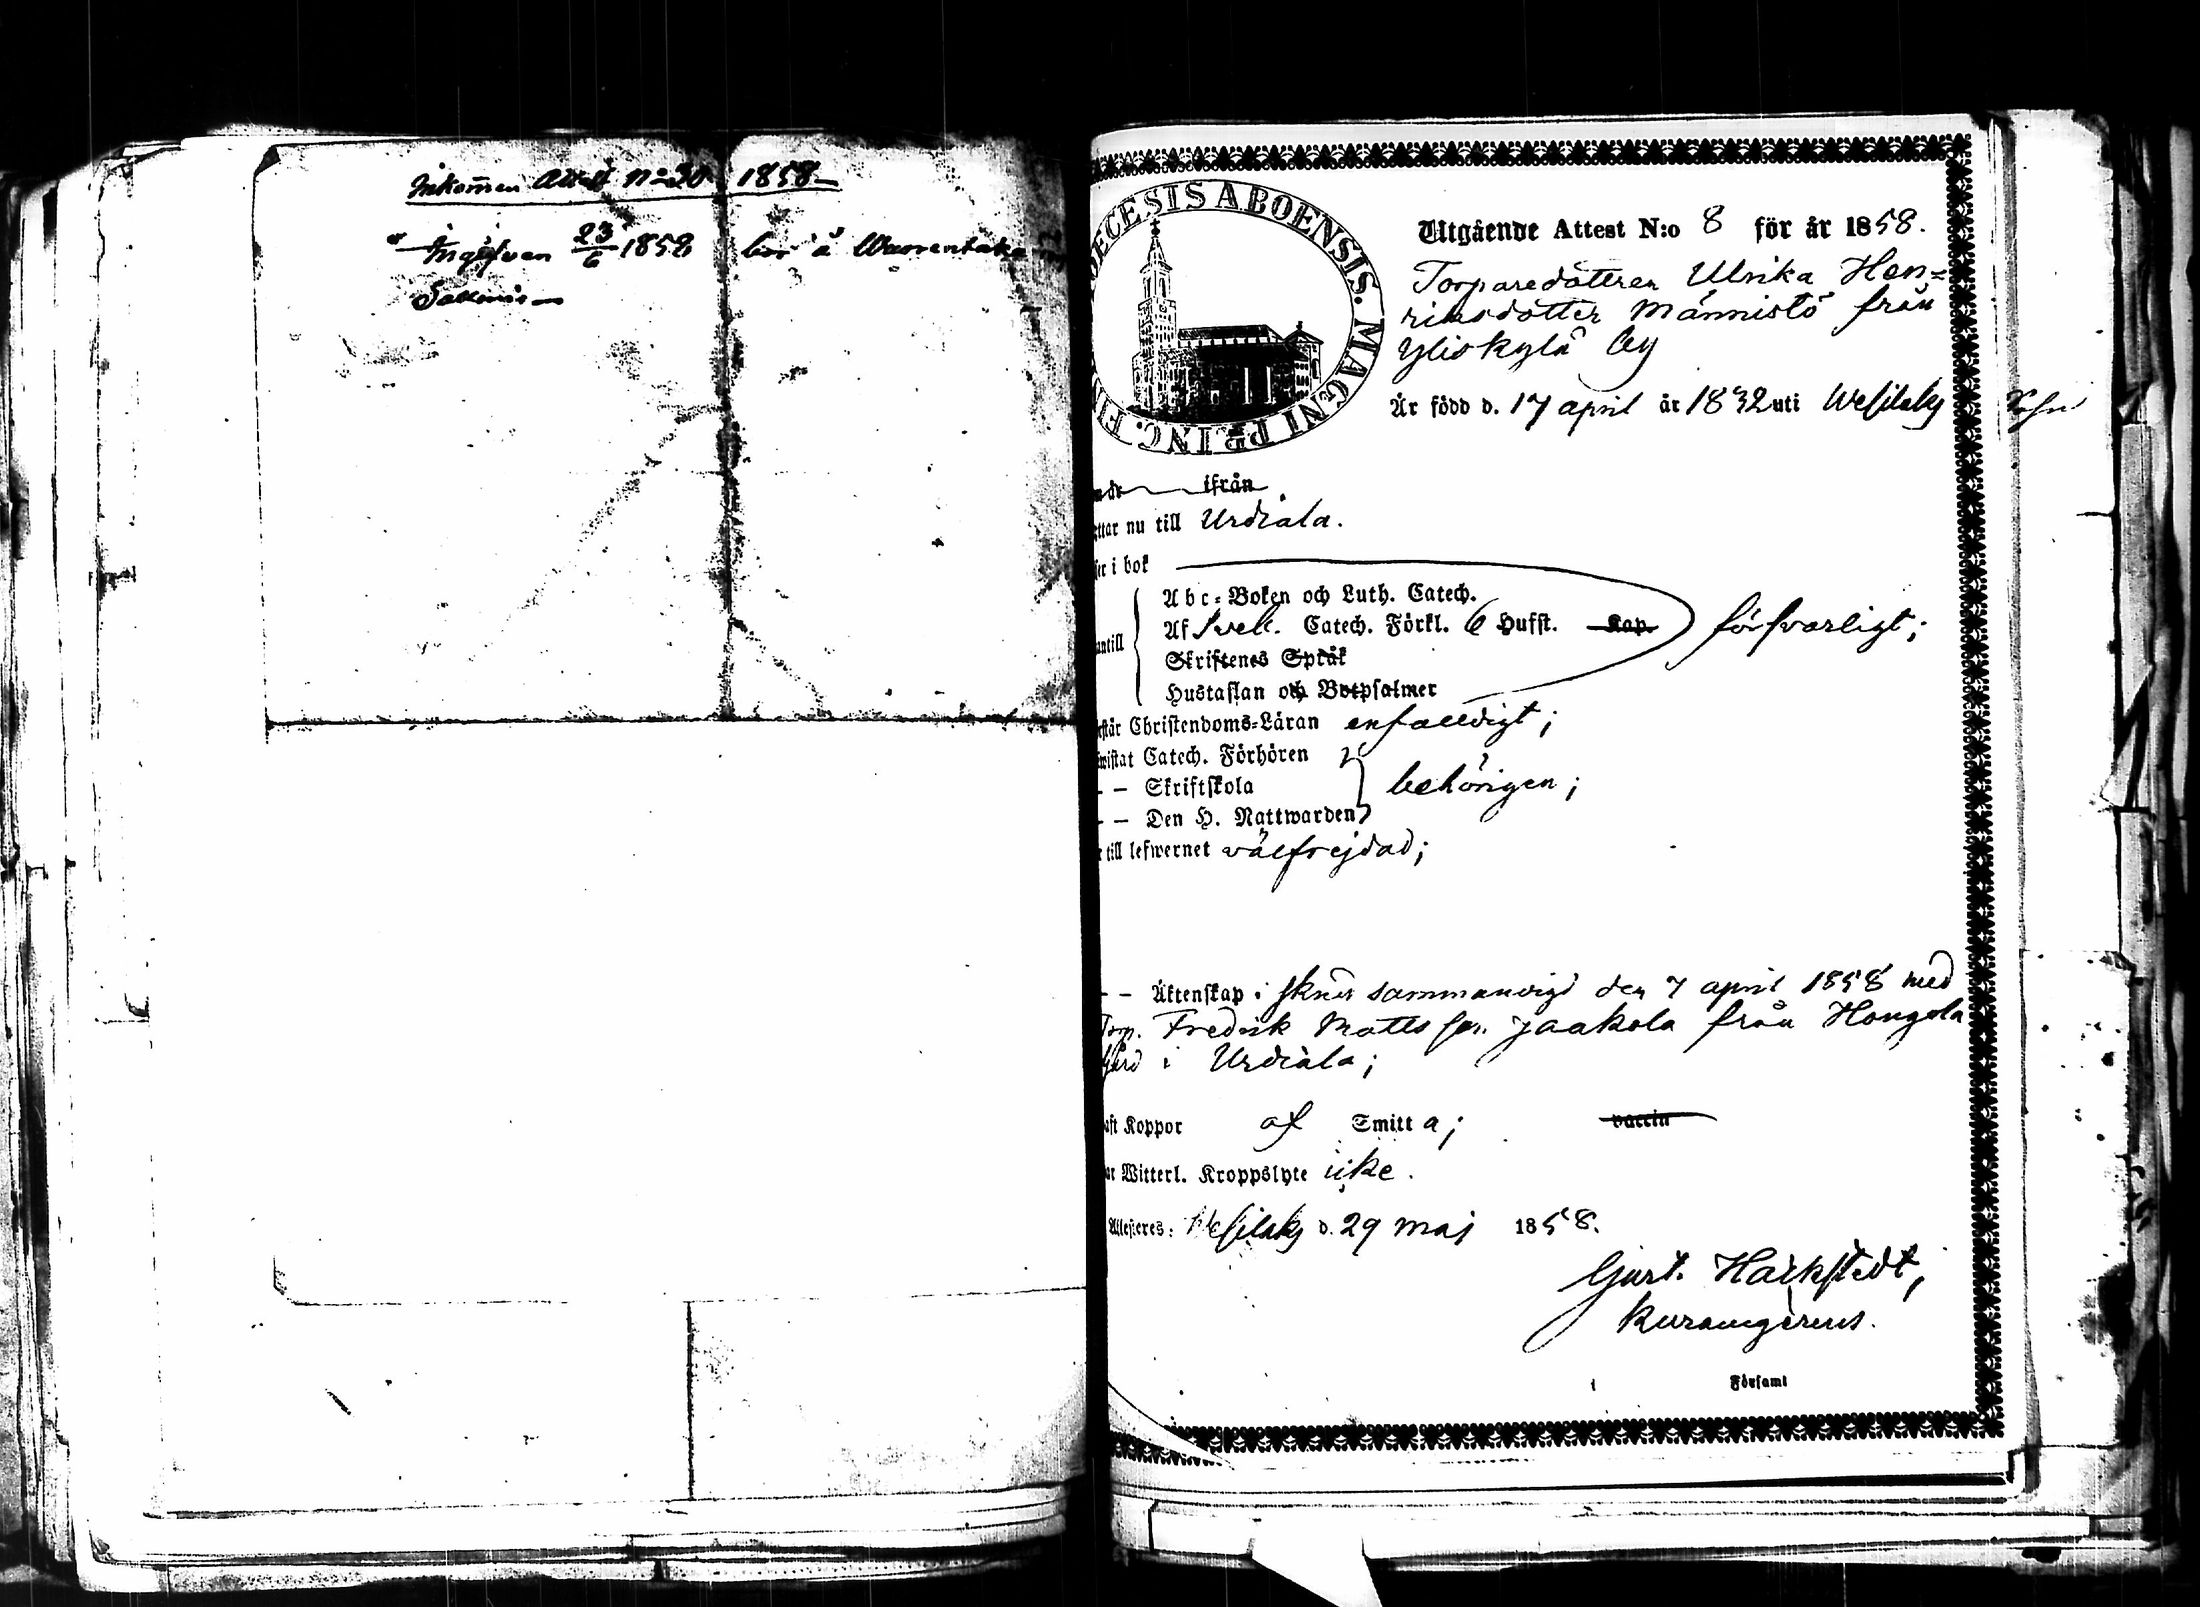 Inkommen Attest No 30 1858
Ingifven 23/6 1858 bor å
DIOECESIS ABOENSIS. MAGNI PRINC. FIN
Utgående Attest N:o 8 för år 1858.
Torparedottren Ulrika Hen=
riksdotter Männistö från
Yliskylä by
Är född d. 17 april år 1832 uti Wesilaks
ifrån
ttar nu till Urdiala.
ser i bok
Abc=Boken och Luth. Catech.
Af Sveb. Catech. Förkl. 6 Hufst. Kap.
försvarligt;
antill
Skriftenes Språk
Hustaflan och Botpsalmer
rstår Christendoms=Läran enfaldigt;
wistat Catech. Förhören
— — Skriftskola behörigen;
— — Den H. Nattwarden
till lefwernet välfrejdad;
— — Äktenskap: sammanvigd den 7 april 1858 med
Torp. Fredrik Matts son Jaakola från Hongola
gård i Urdiala;
aft Koppor af Smitta; vaccin
ar Witterl. Kroppslyte icke.
Attesteres: Wesilaks d. 29 maj 1858.
Gust. Harkstedt,
Församl